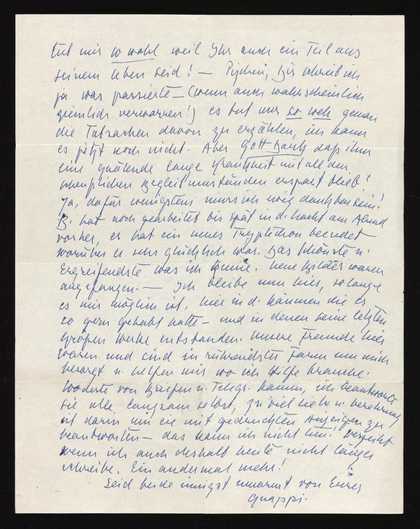 tut mir so wohl weil Ihr auch ein Teil aus
seinem Leben seid! — Dir schrieb ich
ja was passierte — (wenn auch wahrscheinlich
ziemlich verworren!) es tut mir so weh genau
die Tatsachen davon zu erzählen, ich kann
es jetzt noch nicht. Aber Gott Dank dass ihm
eine quälende lange Krankheit mit all den
Begleitumständen erspart blieb!
Ja, dafür wenigstens muss ich ewig dankbar sein!
hat noch gearbeitet bis spät in d. Nacht am Abend
vorher, er hat ein neues Tryptichon beendet
worüber er sehr glücklich war. Das Schönste u.
Ergreifendste was ich kenne. Neue Bilder waren
angefangen — Ich bleibe nun hier, solange
es mir möglich ist. Hier in d. Räumen die er
so gern gehabt hatte — und in denen seine letzten
grossen Werke entstanden. Unsere Freunde hier
waren und sind in rührendster Form um mich
besorgt u. helfen mir wo ich Hilfe brauche.
von Briefen u. Telegr. kamen, ich beantworte
sie alle langsam selbst, zu viel Liebe u. Verehrung
ist darin um sie mit gedruckten Anzeigen zu
beantworten — das kann ich nicht tun! Verzeiht
wenn ich auch deshalb heute nicht länger
schreibe. Ein andermal mehr!
Seid beide innigst umarmt von Eurer
Quappi.